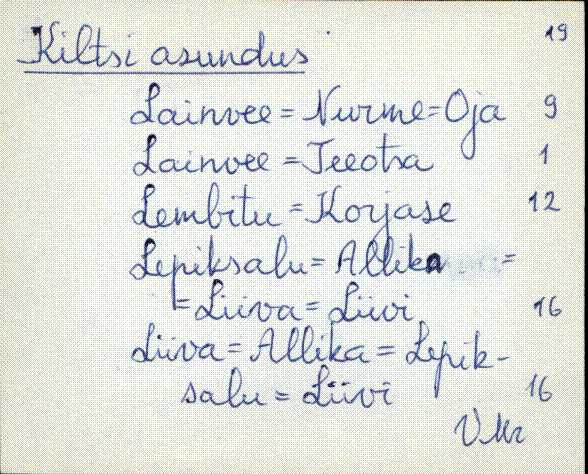 Kiltsi asundus 19
Lainvee = Nurme = Oja 9
Lainvee = Teeotsa 1
Lembitu = Korjase 12
Lepiksalu = Allika =
= Liiva = Liivi 16
Liiva = Allika = Lepik-
salu = Liivi 16